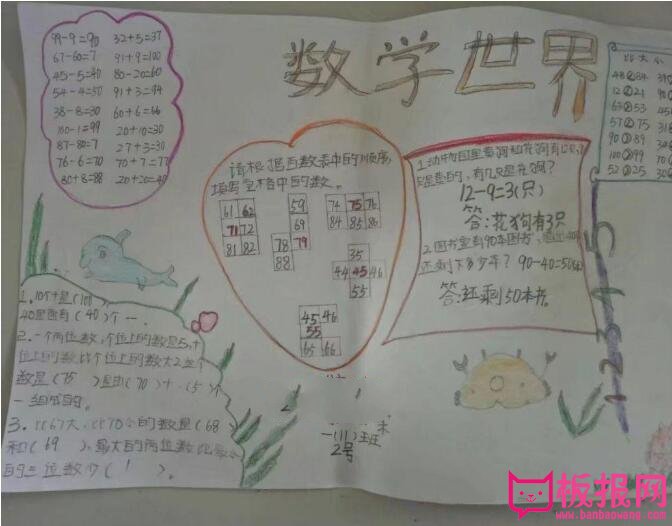 数学世界
99-9=90 32+5=37
67-60=7 91+9=100
45-5=40 80-20=60
54-4=50 91+3=94
38-8=30 60+6=66
100-1=99 20+10=30
87-80=7 27+3=30
76-6=70 70+7=77
80+8=88 20+20=40
请根据百数表中的顺序,
填写空格中的数。
61 62
71 72
81 82
59
69
78 79
88
74 75 76
84 85 86
35
44 45 46
55
45 46
55
65 66
12-9=3(只)
答:花狗有3只
2.图书室有90本图书,
还剩下多少本? 90-40=50
答:还剩50本书。
比大小
1.10个十是(100)
40里面有(40)个一.
2.一个两位数,个位上的数是5,十
位上的数比个位上的数大2,这个
数是(75)是由(70)+(5)个
一组成的。
3.比67大,比70小的数是(68)
和(69),最大的两位数比最小
的三位数少(1)。
一(1)班
2号
1 2 3 4 5
板报网
www.banbaowang.com